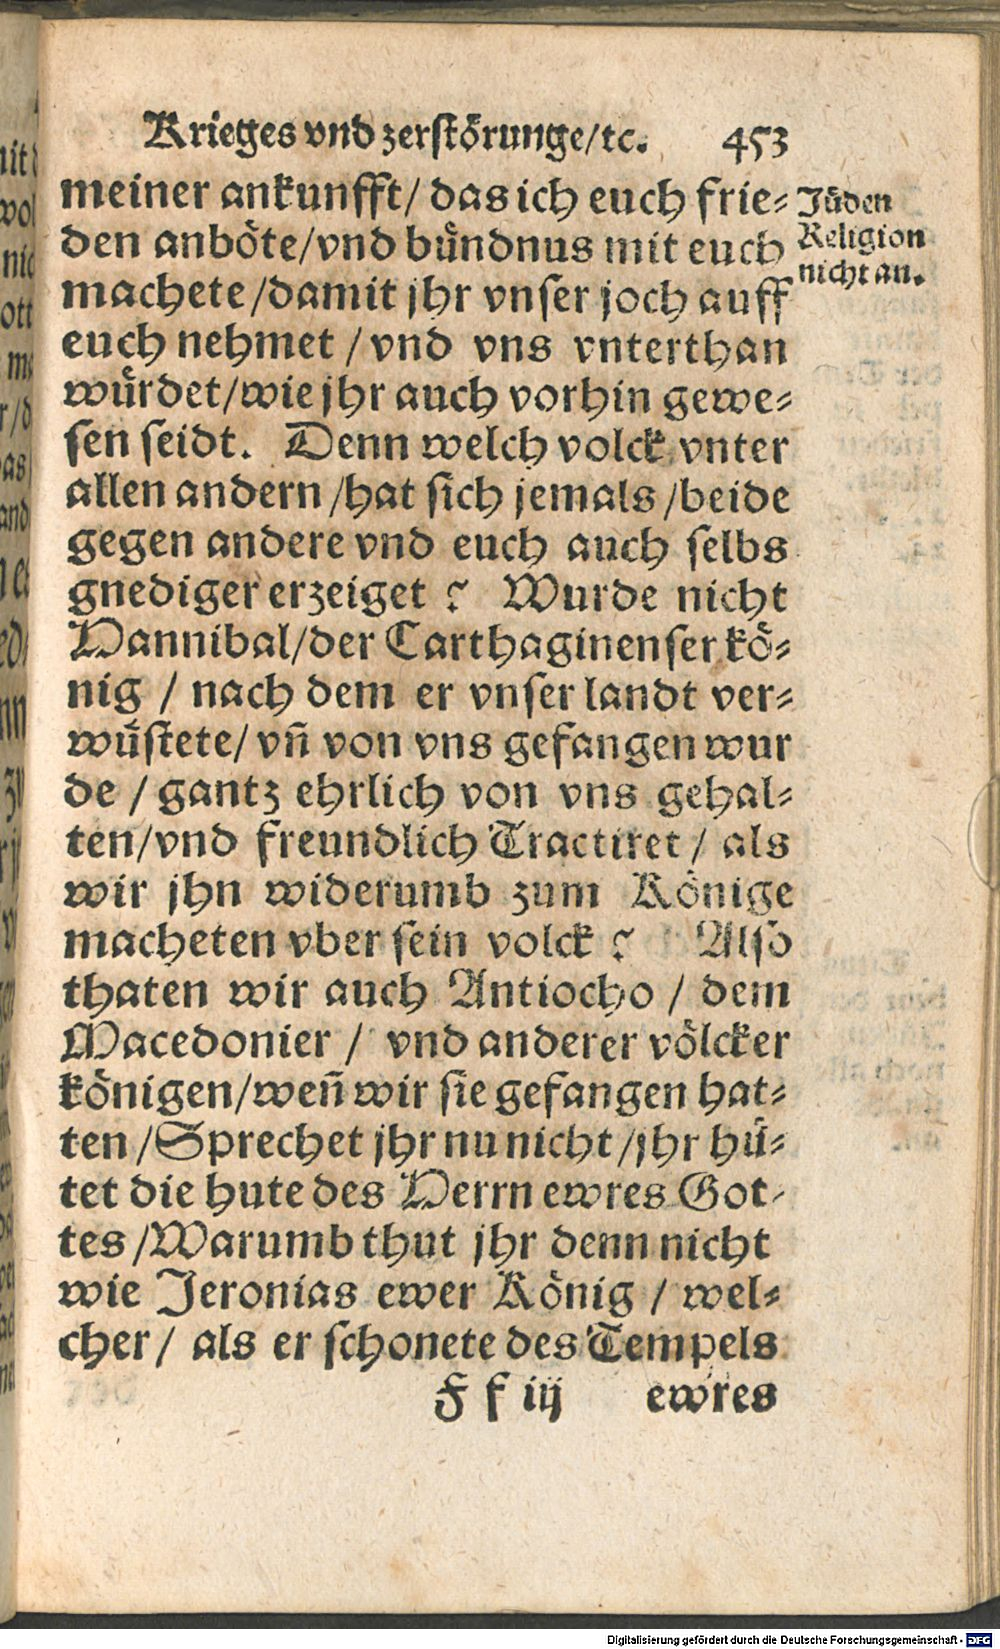 Krieges vnd zerstörunge/ꝛc. 453
meiner ankunfft/ das ich euch frie⸗
den anböte/vnd bündnus mit euch
machete /damit jhr vnser joch auff
euch nehmet / vnd vns vnterthan
würdet/wie jhr auch vorhin gewe⸗
sen seidt. Denn welch volck vnter
allen andern /hat sich jemals /beide
gegen andere vnd euch auch selbs
gnediger erzeiget ? Wurde nicht
Hannibal/der Carthaginenser kö⸗
nig / nach dem er vnser landt ver⸗
wüstete/ vñ von vns gefangen wur
de / gantz ehrlich von vns gehal⸗
ten/vnd freundlich Tractiret / als
wir jhn widerumb zum Könige
macheten vber sein volck ? Also
thaten wir auch Antiocho / dem
Macedonier / vnd anderer völcker
königen/weñ wir sie gefangen hat⸗
ten /Sprechet jhr nu nicht /jhr hü⸗
tet die hute des Herrn ewres Got⸗
tes /Warumb thut jhr denn nicht
wie Jeronias ewer König / wel⸗
cher/ als er schonete des Tempels
F f iij ewres
Jüden
Religion
nicht an.
Digitalisierung gefördert durch die Deutsche Forschungsgemeinschaft - DFG